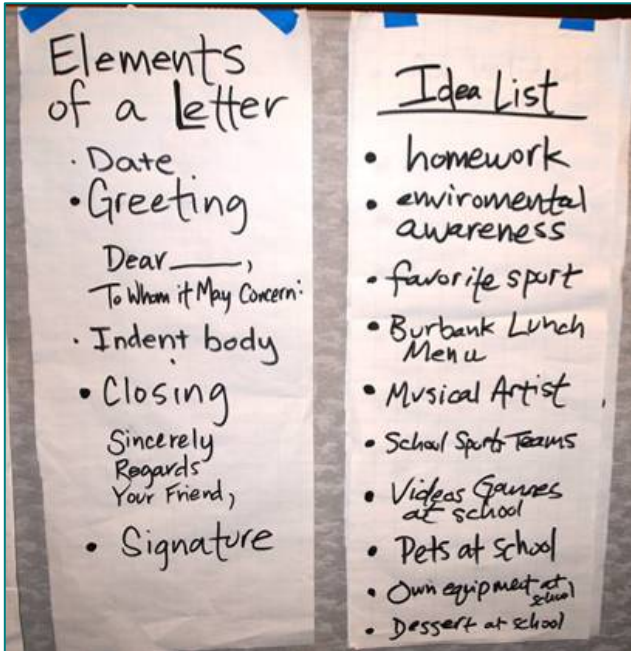 Elements
of a Letter
· Date
• Greeting
Dear _____,
To Whom it May Concern:
· Indent body
• Closing
Sincerely
Regards
Your Friend,
• Signature
Idea List
• homework
• enviromental
awareness
• favorite sport
• Burbank Lunch
Menu
• Musical Artist
• School Sports Teams
• Videos Games
at school
• Pets at school
• Own equipment at
school
• Dessert at school